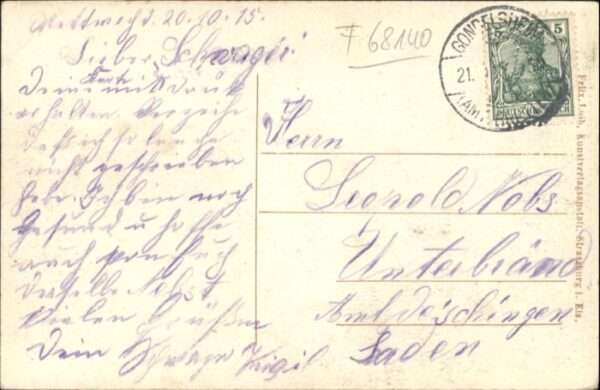 Mettwoch d. 20.10.15.
Lieber Schwager
Deine Karte mit Dank
erhalten. Verzeihe
daß ich so lange
nicht geschrieben
habe. Ich bin noch
Gesund u hoffe
auch von Euch
dasselbe Nebst
vielen Grüßen
Dein Schwager
F 68140
GONDELSHEIM
21.
5
Herrn
Leopold Nobs
Unterbränd
Amt doischingen
Baden
Felix Luib, Kunstverlagsanstalt, Strassburg i. Els.